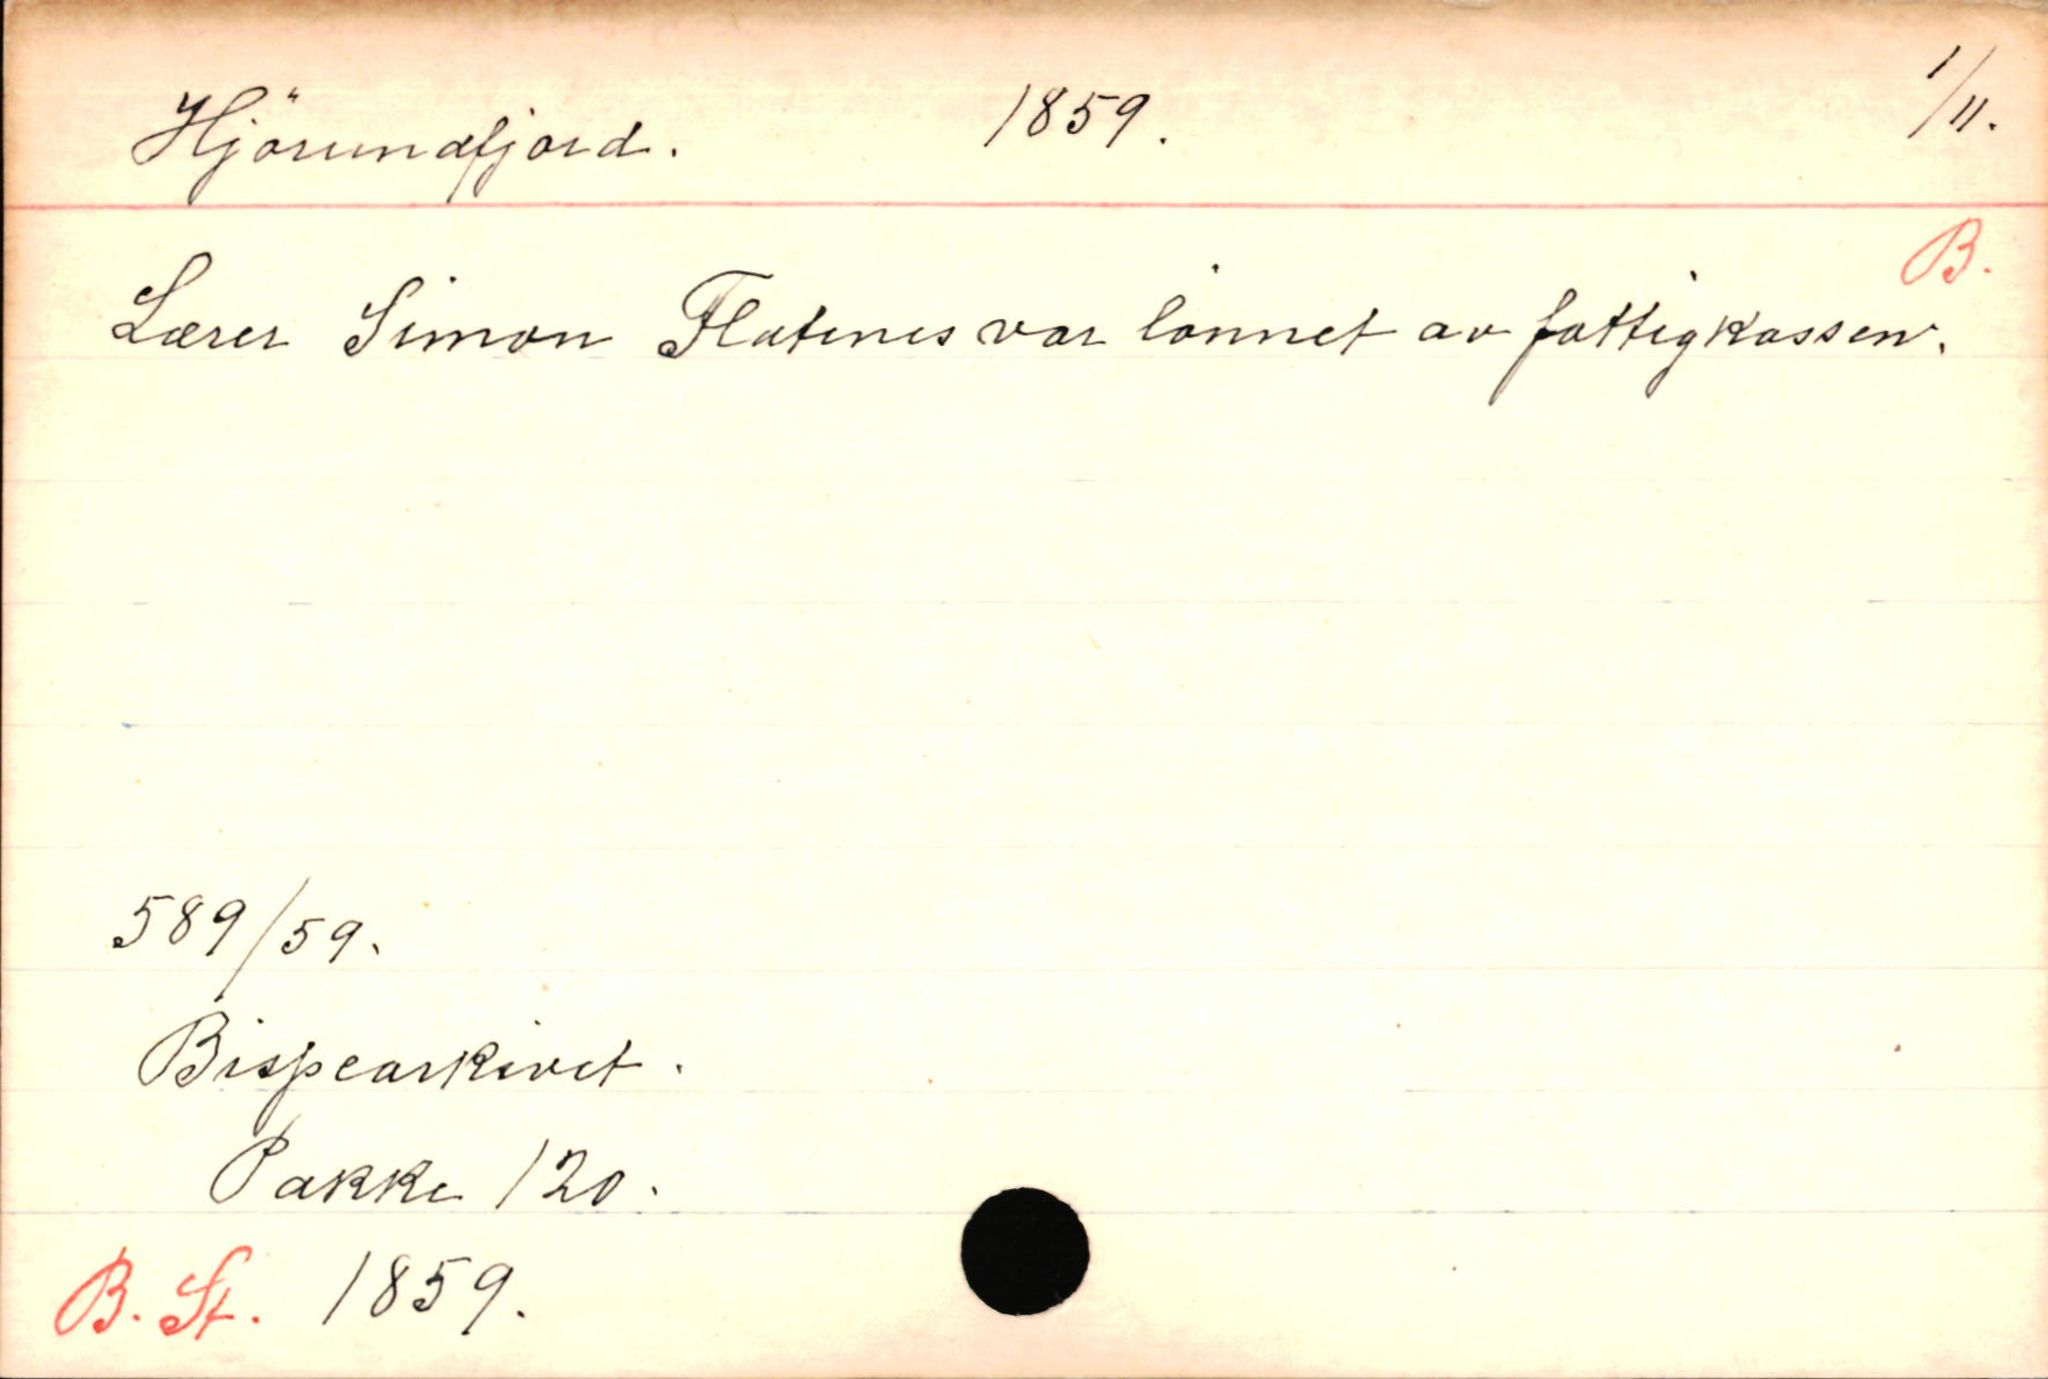 Hjörundfjord. 1859. 1/11.
B.
Lærer Simon Flatenes var lönnet av fattigkassen.
589/59.
Bispearkivet.
Pakke 120.
B. St. 1859.